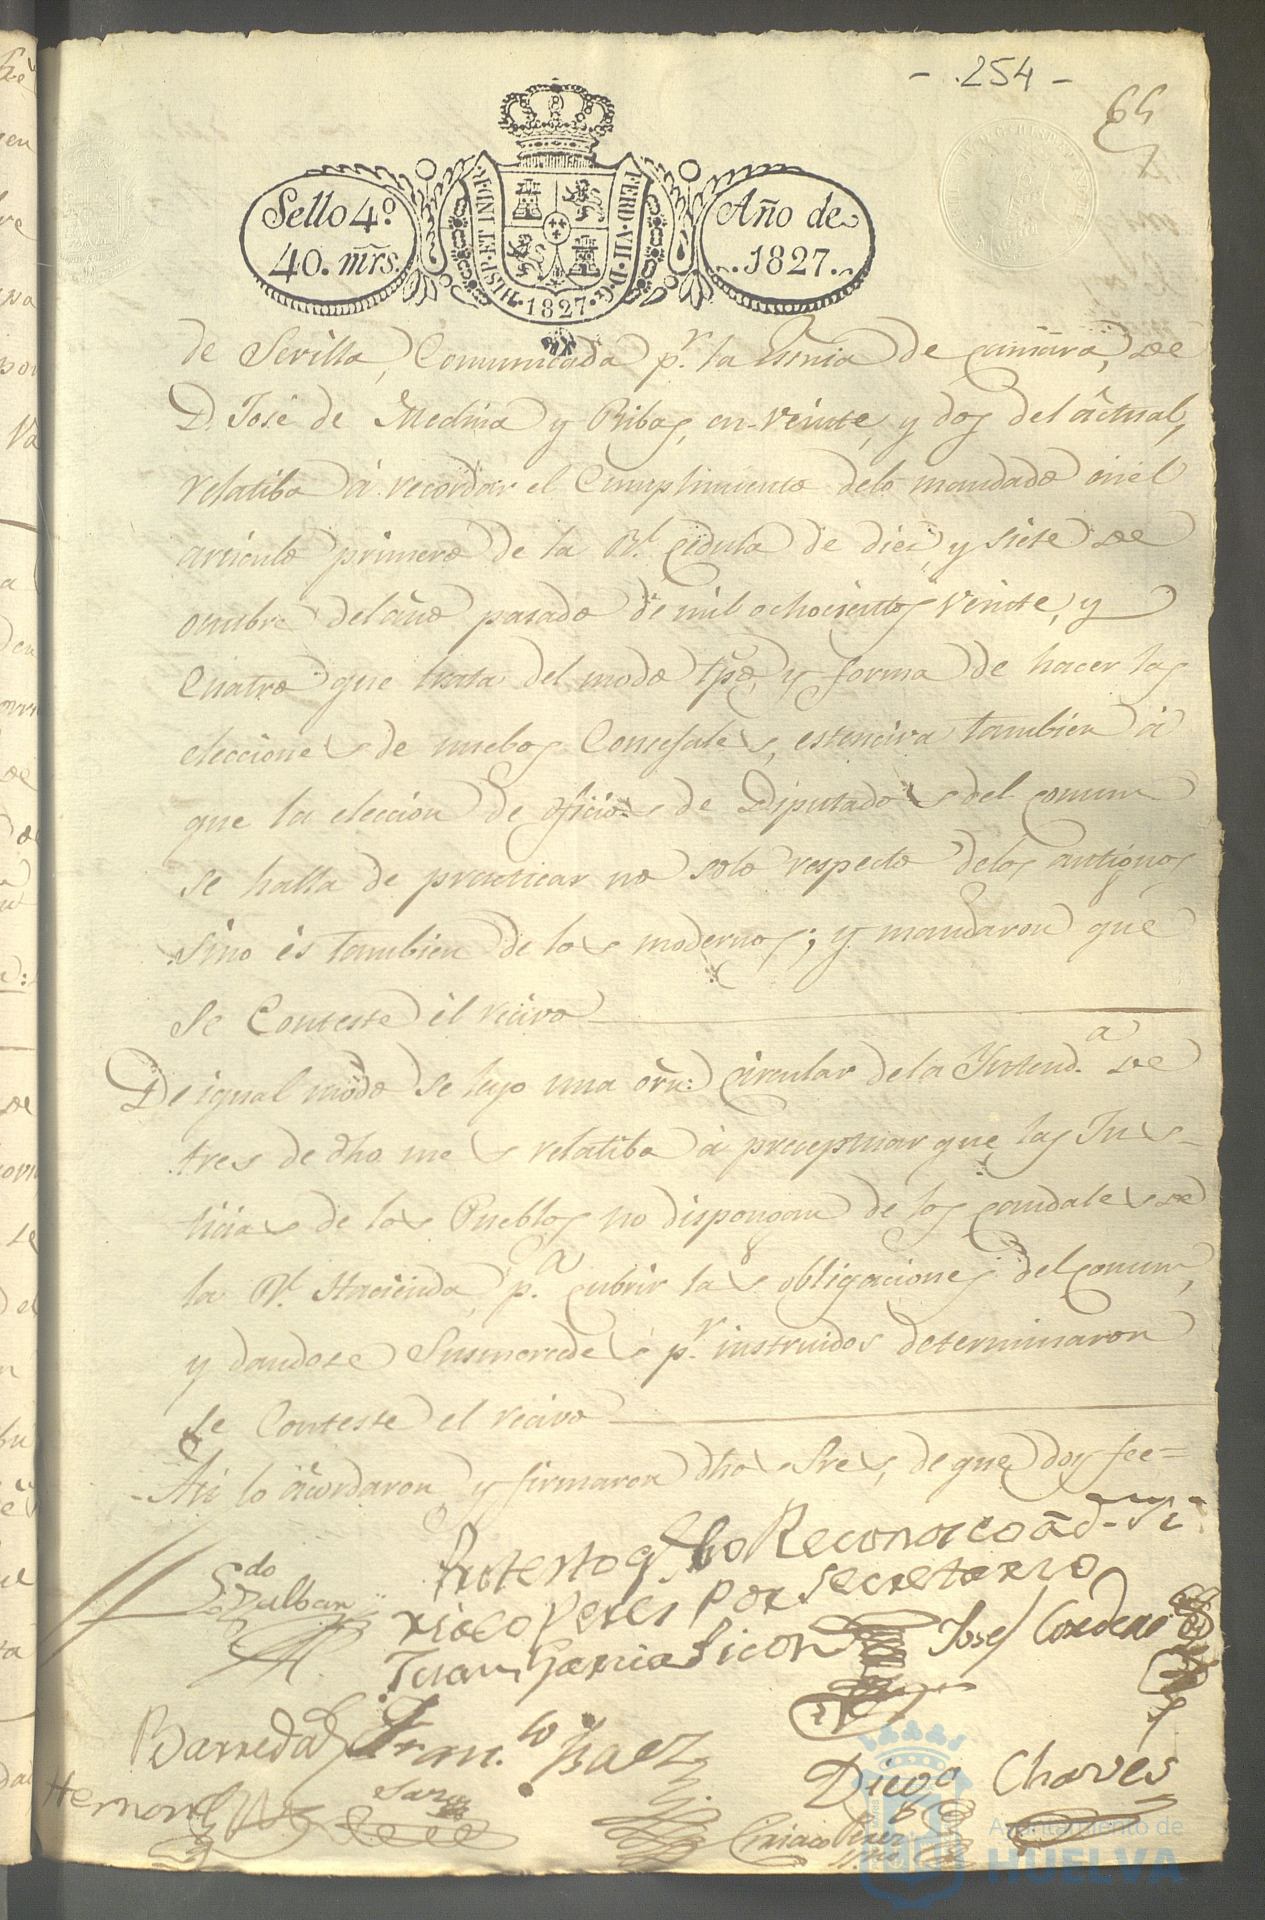 - 254 -
65
Sello 4º
40. mrs.
HISP. ET IND. R.
FERD. VII. D. G.
1827
Año de
1827.
de Sevilla, Comunicada pr. la Esnia de camara, de
D. José de Medina y Ribas, en veinte, y dos del actual,
relatiba á recordar el Cumplimiento delo mandado enel
articulo primero de la Rl. cedula de diez, y siete de
octubre del año pasado de mil ochocientos veinte, y
Cuatro que trata del modo tpo, y forma de hacer las
elecciones de nuebos Consejales, estenciva tambien á
que la eleccion de oficios de Diputados del comun
se halla de practicar no solo respecto delos antiguos
sino es tambien de los modernos; y mandaron que
se Conteste el recivo
De igual modo se leyo una orn: circular dela Yntend.a de
tres de dho mes relatiba á preceptuar que las Jus-
ticias de los Pueblos no dispongan de los caudales de
la Rl. Hacienda, p.a cubrir las obligaciones del comun,
y dandose Susmercedes pr. instruidos determinaron
se Conteste el recivo
Asi lo acordaron y firmaron dhos Sres, de que doy fee=
Protesto q no Reconosco a d.
Perez por secretario
Juan Garcia Jose Cordero
Barreda Fran.co Baez
Diego Chaves
Hernan
Ciriaco Perez
Ayuntamiento de
HUELVA